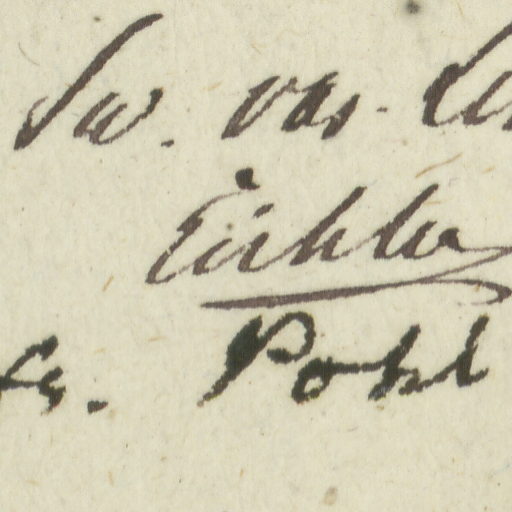 Sw. var.
Eichler
Pohl